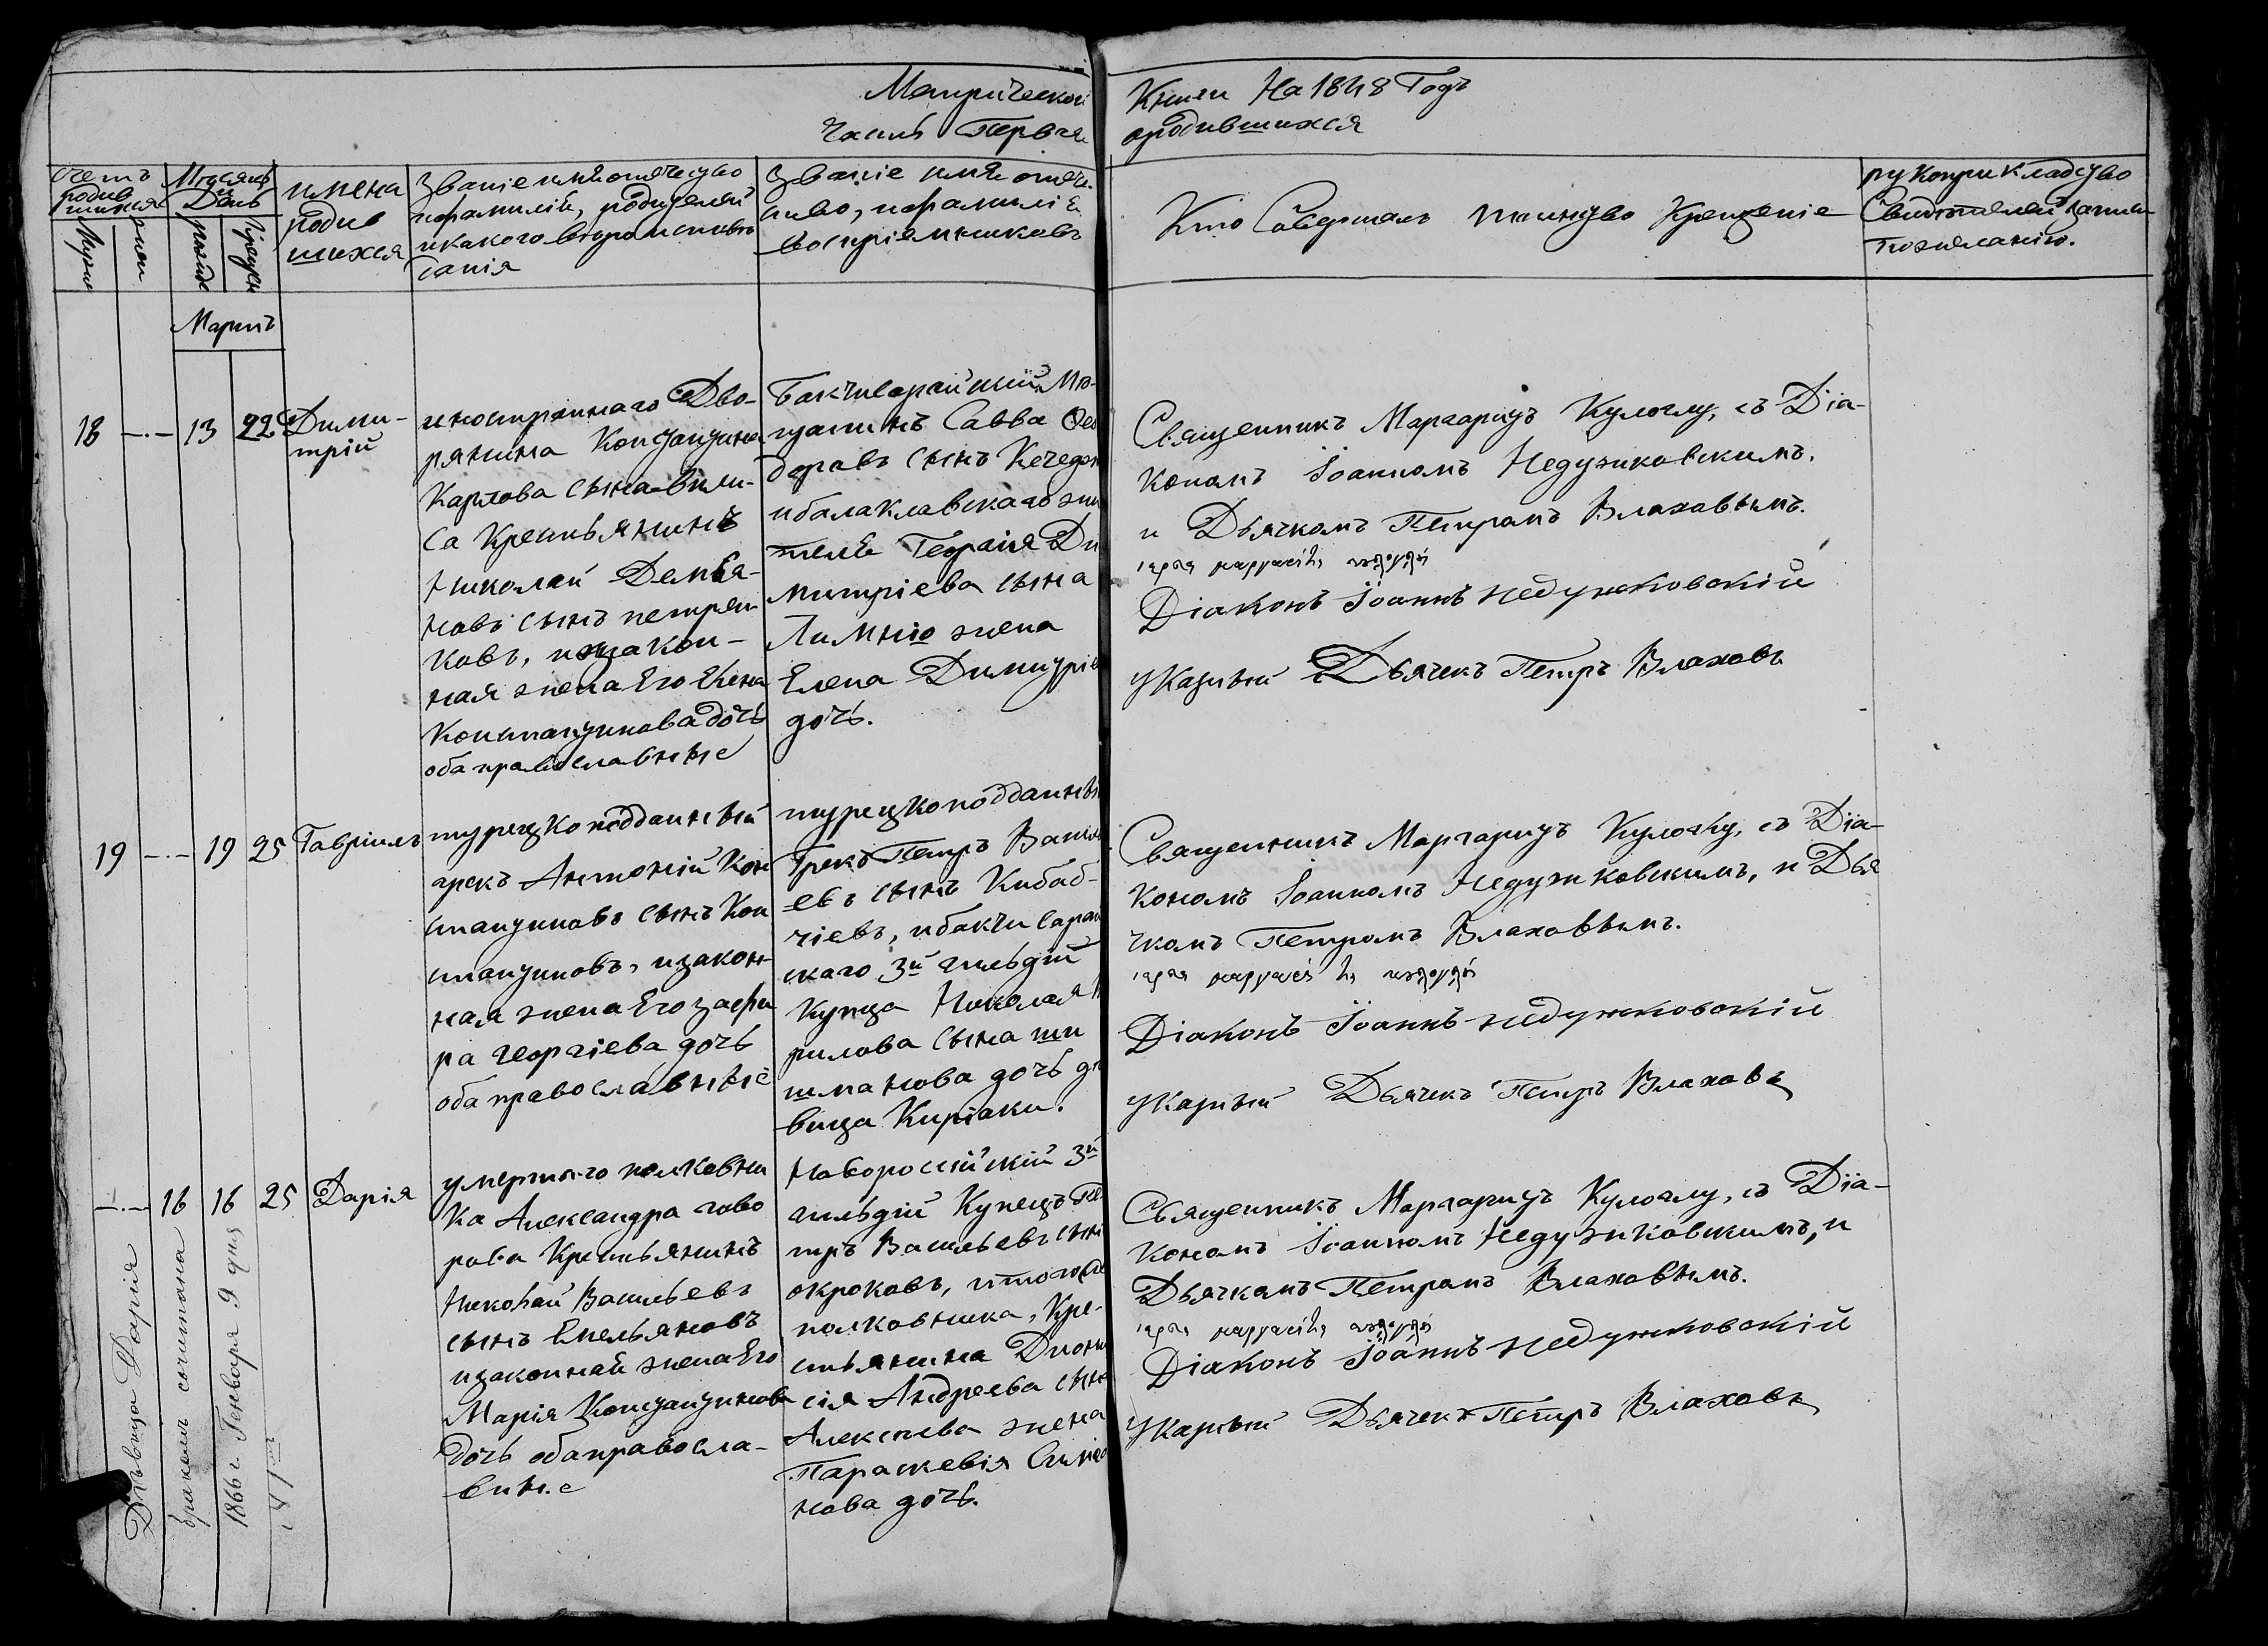 Метрической Книги На 1848 Годъ
Часть Первая ородившихся
Счетъ родившихся
Мужес
женск
Мѣсяцъ и День
рожден
Крещен
имена родившихся
Званіе имя отечество
ифамилія, родителей
икакого вѣроисповѣ
данія
Званіе имя отече-
ство, ифамилія
воспріемниковъ
Кто Совершалъ таинство Крещеніе
рукоприкладство
Свидѣтелей записи
пожеланію.
Мартъ
18 —·— 13 22 Дими-
трій
иностраннаго Дво-
рянина Константина
Карлова сына Вили-
са Крестьянинъ
Николай Демья-
новъ сынъ петрен-
ковъ, изакон-
ная жена Его Елена
Константинова дочь
оба православные
Бакчисарайскій Мѣ-
щанинъ Савва Ѳео
доровъ сынъ Кечеджи
ибалаклавскаго жи
теля Георгія Ди
митріева сына
Лимнію жена
Елена Димитріе
дочь.
Священникъ Маргаритъ Кулоглу, съ Діа-
кономъ Іоанномъ Недужковскимъ.
и Дьячкомъ Петромъ Влаховымъ.
Діаконъ Іоаннъ недужковскій
указный Дьячекъ Петръ Влаховъ
19 —·— 19 25 Гавріилъ
турецкоподданный
грекъ Антоній Кон
стантиновъ сынъ Кон
стантиновъ, изакон-
ная жена Его Зафи
ра Георгіева дочь
оба православные
турецкоподданный
Грекъ Петръ Васил
евъ сынъ Кибаб-
чіевъ, ибакчисарай
скаго 3й гильдій
Купца Николая К
рилова сына ши
шманова дочь дѣ
вица Киріаки.
Священникъ Маргаритъ Кулоглу, съ Діа-
кономъ Іоанномъ Недужковскимъ, и Дья
чкомъ Петромъ Влаховымъ.
Діаконъ Іоаннъ недужковскій
указный Дьячекъ Петръ Влаховъ
—·— 16 16 25 Дарія
умершаго полковни
ка Александра гово
рова Крестьянинъ
Николай Васильевъ
сынъ Емельяновъ
изаконной жена Его
Марія Константинова
дочь оба правосла-
вные
Новоросійскій 3й
гильдій Купецъ Пе
тръ Васильевъ сынъ
окроковъ, итогоже
полковника, Кре-
стьянина Діони
сія Андреева сына
Алексѣева жена
Параскевія Симео
нова дочь.
Священникъ Маргаритъ Кулоглу, съ Діа-
кономъ Іоанномъ Недужковскимъ, и
Дьячкомъ Петромъ Влаховымъ.
Діаконъ Іоаннъ недужковскій
указный Дьячекъ Петръ Влаховъ
Дѣвица Дарія
бракомъ сочетана
1866 г. Генваря 9 дня
№ 1